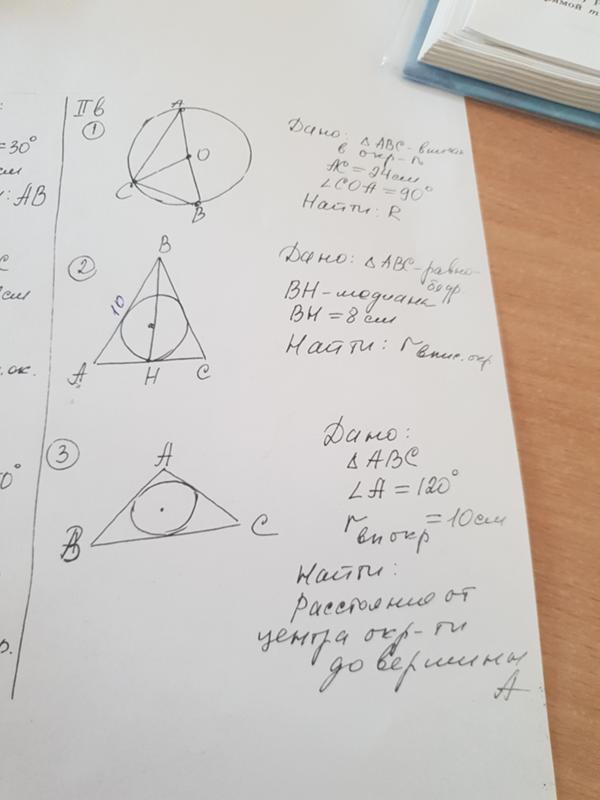 =30°
см
: АВ
С
см
IIв
1
А
О
С
В
Дано: △ABC-
в окр-
AC=24см
∠COA=90°
Найти: R
2
В
10
А
Н
С
Дано: △ABC-равно-
бедр.
BH-медиана
BH=8см
Найти: r впис. окр
3
А
В
С
Дано:
△ABC
∠A=120°
r вп окр =10см
Найти:
Расстояние от
центра окр-ти
до вершины
А
ок.
0°
р.